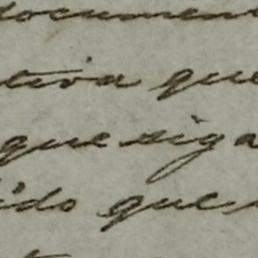 documen
tiva que
que siga
ido que